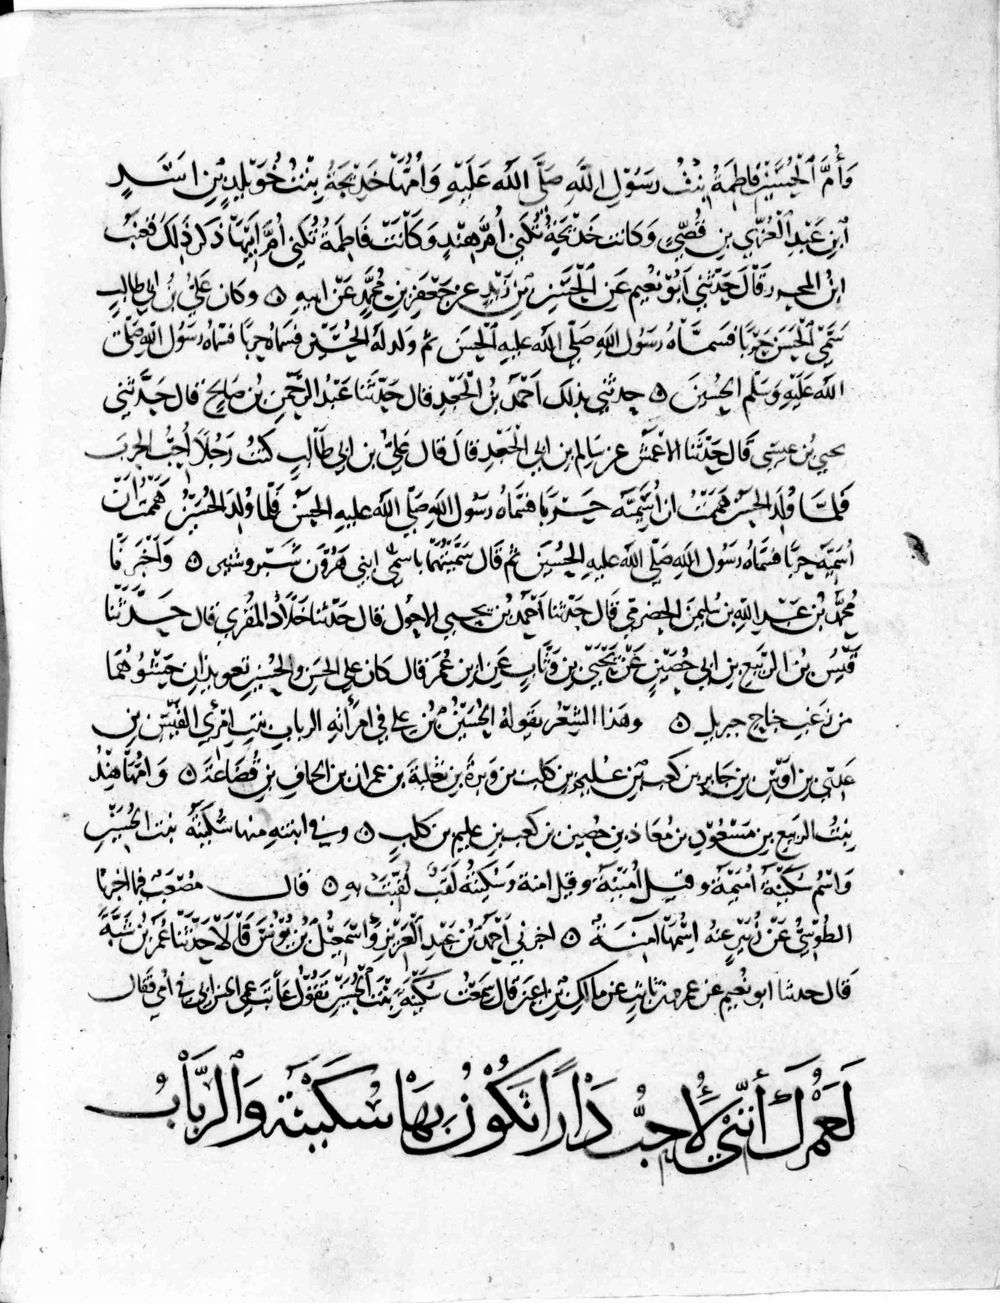 وَأُمَّ الْحُسَيْنِ فَاطِمَةُ بِنْتُ رَسُوْلِ اللَّهِ صَلَّى اللَّهُ عَلَيْهِ وَأُمُّهَا خَدِيْجَةُ بِنْتُ خُوَيْلِدِ بْنِ اَسَدِ
ابْنِ عَبْدِ الْعُزَّى بن قُصَيٍّ وَكانَت خَدِيْجَةُ تُكنَى أُمَّ هِنْدٍ وَكَانَتْ فَاطِمَةُ تُكْنَى أُمَّ اَبِيْهَا ذَكرَ ذٰلِكَ قَعْنَبُ
ابن المحرر قَالَ حَدَّثَنِي اَبُوْ نُعَيْمٍ عَنِ الْحُسَيْنِ بْنِ زَيْدٍ عَن جَعْفَرِ بْنِ مُحَمَّدٍ عَنْ ابيهِ ٥ وكان عَلِيُّ بْنُ ابي طالِبٍ
سَمَّى الْحَسَنَ حَرْبًا فسَمَّاهُ رَسُوْلُ اللَّهِ صَلَّى اللَّهُ عليهِ الْحسَنَ ثم ولد لَهُ الْحُسَيْنُ فسَمَّاهُ حربًا فسَمَّاهُ رَسُوْلُ اللَّهِ صَلَّى
اللَّهُ عَلَيْهِ وَسَلَّم الْحُسينَ ٥ حدثَنِي بذلك اَحْمَدُ بْنُ الْجَعْدِ قال حَدَّثَنَا عَبْدُ الرَّحْمنِ بْنُ صَالِحٍ قال حَدَّثَنِي
يحيى بْنُ عِيسَى قَالَ حَدَّثَنَا الاعْمَشُ عن سَالِم بن ابي الْجَعْدِ قال قال عَلِيُّ بن ابي طَالبٍ كنْتُ رَجُلًا اُحِبُّ الحَربَ
فَلمَّا وُلِدَ الحسَنُ هَمَمْتُ ان اُسَمِّيَهُ حَرْبًا فسَمَّاهُ رسُوْلُ اللَّهِ صَلَّى اللَّهُ عليهِ الحَسَنَ فَلَمَّا وُلدَ الحُسَيْنُ هَمَمْتُ اَنْ
اُسَمِّيَهُ حربًا فسَمَّاهُ رَسُوْلُ اللَّهِ صَلَّى اللَّهُ عليهِ الحُسَيْنَ ثُم قَالَ سَمَّيْتُهُمَا باسْمَي ابني هَرُوْنَ شَبَّر وشبير ٥ وَاَخْبرَنَا
مُحَمَّدُ بْنُ عَبْدِ اللَّهِ بن سُليمن الحضرَمي قَالَ حَدَّثَنَا اَحْمَدُ بن يحيى الاحولُ قال حَدَّثَنا خَلَّادُ المُقرِي قال حَدَّثَنَا
قَيْسُ بْنُ الرَّبيْعِ بن ابي حُصَيْنٍ عَنْ يَحْيَى بن وَثَّابٍ عَنِ ابن عُمَرَ قَال كان على الحَسَن والحُسَيْنِ تعويذان حَشْوُهُمَا
من زغَبِ جناحِ جبريلَ ٥ وهَذا الشِّعْر يقَولهُ الْحُسَيْنُ بْنُ علي في امْرَأتِهِ الرباب بنتِ امْرِئ القَيْس بن
عَدِيِّ بن اَوْسِ بن جَابِر بن كعب بْنِ عُلَيم بن كلب بن وَبرَةَ بن ثعلبة بن عمران بن الحافِ بن قُضَاعَةَ ٥ وَامُّهَا هِنْدُ
بنتُ الربيع بن مَسْعُوْدِ بن مُعَاذ بن حُصين بن كعب بن عليم بن كلبٍ ٥ وفي ابنتهِ منها سُكَيْنَةَ بنت الحُسَيْنِ
وَاسْمُ سُكيْنَةَ اُمَيْمَةُ وقيلَ اُمَيْنَةُ وقيل امنة وسُكيْنَةُ لقَبٌ لُقِّبَتْ بهِ ٥ قال مُصْعَبٌ فيما اخبرنا
الطُّوْسِيُّ عَنْ زُبَيْرٍ عنْهُ اسْمُهَا امِنَةُ ٥ اخبرني اَحْمَدُ بْنُ عَبْدِ الْعَزِيْزِ وَاسْمَعِيْلُ بْنُ يُوْنُسَ قَالَا حَدَّثَنَا عُمَرُ بْنُ شَبَّةَ
قَالَ حدثنا ابو نُعَيم عن عمر بن ثابتٍ عن مالِك بْنِ اَعْيَنَ قالَ سَمِعْتُ سُكَيْنَةَ بنْتَ الْحُسَيْنِ تَقُوْلُ عَاتَبَ عمي الحسن ابي في امي فقَال
لَعَمْرُكَ أَنَّنِي لَأُحِبُّ دَارًا تَكُوْنُ بِهَا سُكَيْنَةُ وَالرَّبَابُ